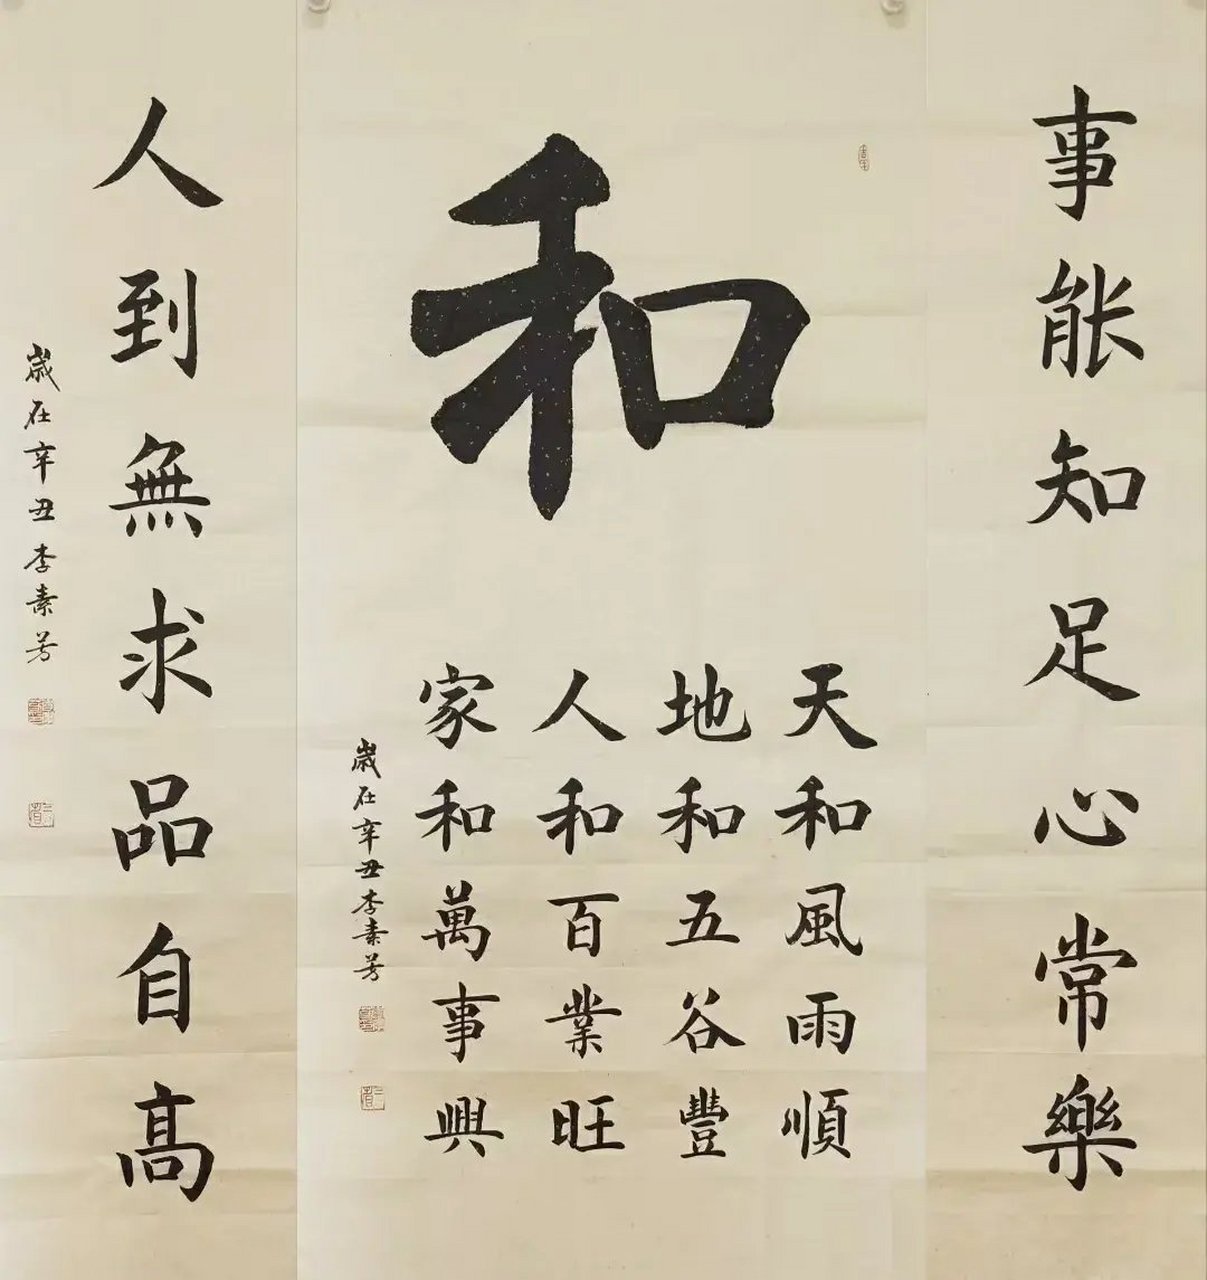 事能知足心常樂
和
天和風雨順
地和五谷豐
人和百業旺
家和萬事興
歲在辛丑李素芳
人到無求品自高
歲在辛丑李素芳